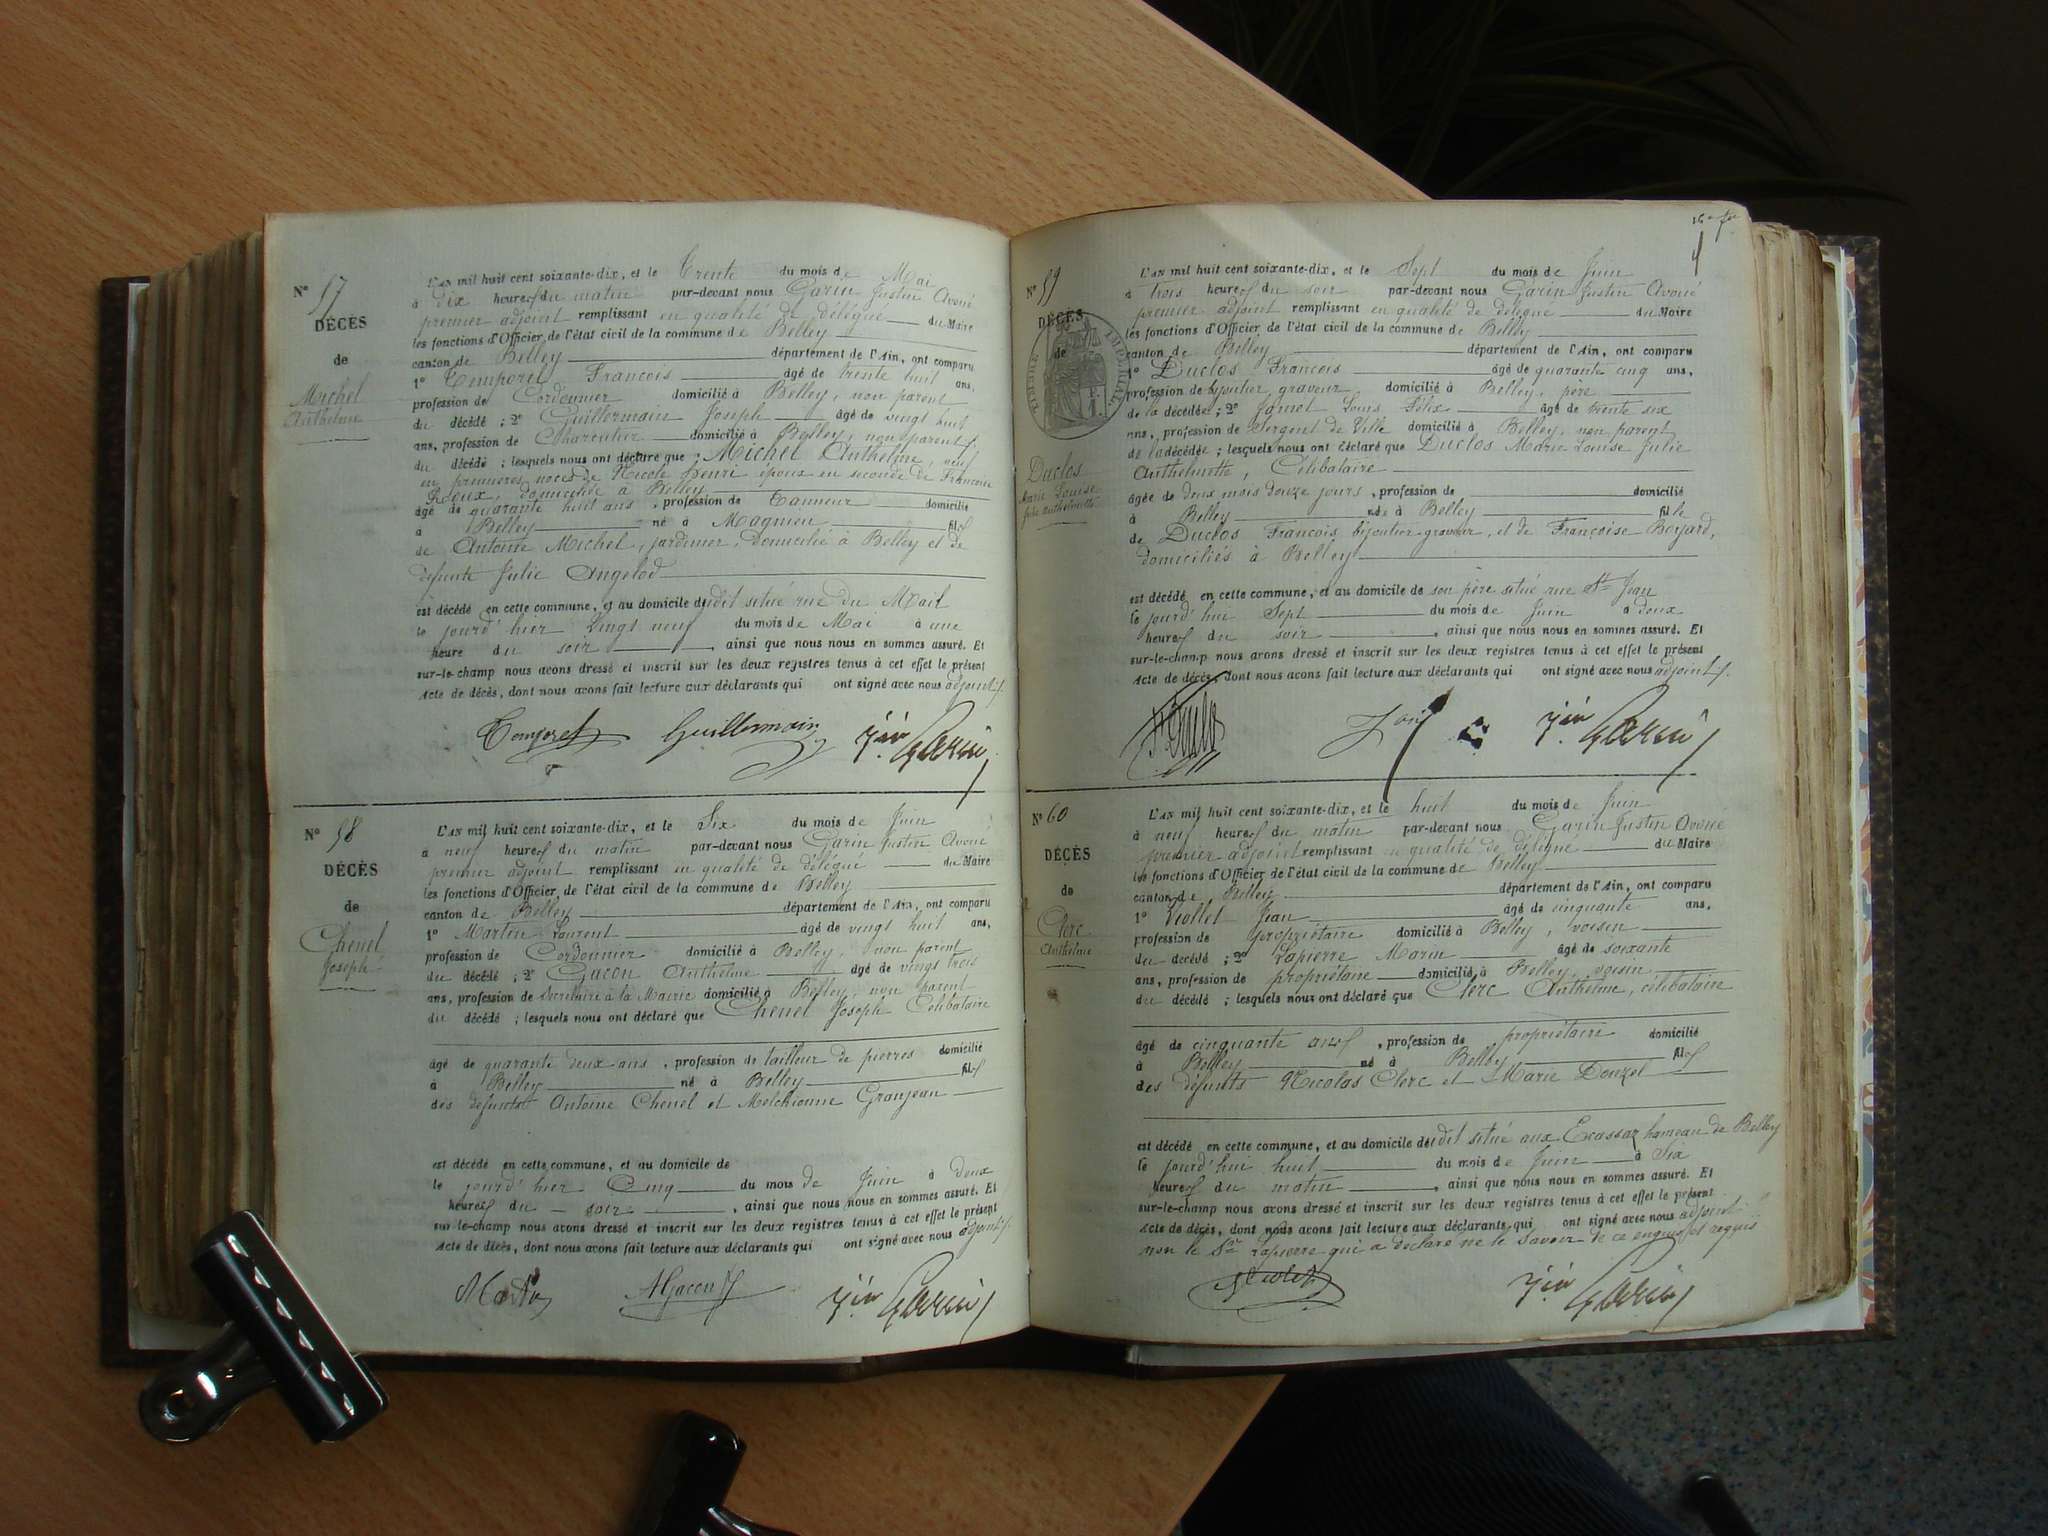 N° 57
DÉCÈS
de
Michel
Anthelme
L'AN mil huit cent soixante-dix, et le Trente du mois de Mai
à dix heures du matin par-devant nous Garin Justin Avoué
premier adjoint remplissant en qualité de délégué du Maire
les fonctions d'Officier de l'état civil de la commune de Belley
canton de Belley département de l'Ain, ont comparu
1° Temporel François âgé de trente huit ans,
profession de Cordonnier domicilié à Belley, non parent
du décédé ; 2° Guillermain Joseph âgé de vingt huit
ans, profession de Charcutier domicilié à Belley, non parent
du décédé ; lesquels nous ont déclaré que Michel Anthelme, veuf
en premières noces de Nicole Henri époux en seconde de Francoise
Roux, domicilié à Belley
âgé de quarante huit ans, profession de Tanneur domicilié
à Belley né à Magnieu fils
de Antoine Michel, jardinier, domicilié à Belley et de
défunte Julie Angelod
est décédé en cette commune, et au domicile dudit situé rue du Mail
le jourd'hier vingt neuf du mois de Mai à une
heure du soir, ainsi que nous nous en sommes assuré. Et
sur-le-champ nous avons dressé et inscrit sur les deux registres tenus à cet effet le présent
acte de décès, dont nous avons fait lecture aux déclarants qui ont signé avec nous adjoint
Temporel Guillermain Jin Garin
N° 58
DÉCÈS
de
Chenel
Joseph
L'AN mil huit cent soixante-dix, et le Six du mois de Juin
à neuf heures du matin par-devant nous Garin Justin Avoué
premier adjoint remplissant en qualité de délégué du Maire
les fonctions d'Officier de l'état civil de la commune de Belley
canton de Belley département de l'Ain, ont comparu
1° Martin Laurent âgé de vingt huit ans,
profession de Cordonnier domicilié à Belley, non parent
du décédé ; 2° Gacon Anthelme âgé de vingt trois
ans, profession de Secrétaire à la Mairie domicilié à Belley, non parent
du décédé ; lesquels nous ont déclaré que Chenel Joseph Célibataire
âgé de quarante deux ans, profession de tailleur de pierres domicilié
à Belley né à Belley fils
des défunts Antoine Chenel et Melchionne Granjean
est décédé en cette commune, et au domicile de
le jourd'hier Cinq du mois de Juin à deux
heures du soir, ainsi que nous nous en sommes assuré. Et
sur-le-champ nous avons dressé et inscrit sur les deux registres tenus à cet effet le présent
acte de décès, dont nous avons fait lecture aux déclarants qui ont signé avec nous adjoint
Martin AGacon Jin Garin
N° 59
DÉCÈS
de
TIMBRE IMPERIAL
Duclos
Marie Louise
Julie Anthelmette
L'AN mil huit cent soixante-dix, et le Sept du mois de Juin
à trois heures du soir par-devant nous Garin Justin Avoué
premier adjoint remplissant en qualité de délégué du Maire
les fonctions d'Officier de l'état civil de la commune de Belley
canton de Belley département de l'Ain, ont comparu
1° Duclos François âgé de quarante cinq ans,
profession de bijoutier graveur, domicilié à Belley, père
de la décédée ; 2° Jamet Louis Félix âgé de trente six
ans, profession de Sergent de Ville domicilié à Belley, non parent
de la décédée ; lesquels nous ont déclaré que Duclos Marie Louise Julie
Anthelmette, Célibataire
âgée de deux mois douze jours, profession de domicilié
à Belley née à Belley fille
de Duclos François, bijoutier graveur, et de Françoise Boyard,
domiciliés à Belley
est décédé en cette commune, et au domicile de son père situé rue St Jean
le jourd'hui Sept du mois de Juin à deux
heures du soir, ainsi que nous nous en sommes assuré. Et
sur-le-champ nous avons dressé et inscrit sur les deux registres tenus à cet effet le présent
acte de décès, dont nous avons fait lecture aux déclarants qui ont signé avec nous adjoint
Jin Garin
N° 60
DÉCÈS
de
Clerc
Anthelme
L'AN mil huit cent soixante-dix, et le huit du mois de Juin
à neuf heures du matin par-devant nous Garin Justin Avoué
premier adjoint remplissant en qualité de délégué du Maire
les fonctions d'Officier de l'état civil de la commune de Belley
canton de Belley département de l'Ain, ont comparu
1° Viollet Jean âgé de cinquante ans,
profession de propriétaire domicilié à Belley, voisin
du décédé ; 2° Lapierre Marin âgé de soixante
ans, profession de propriétaire domicilié à Belley, voisin
du décédé ; lesquels nous ont déclaré que Clerc Anthelme, célibataire
âgé de cinquante ans, profession de propriétaire domicilié
à Belley né à Belley fils
des défunts Nicolas Clerc et Marie Douzel
est décédé en cette commune, et au domicile dudit situé aux Ecassaz hameau de Belley
le jourd'hui huit du mois de Juin à Six
heures du matin, ainsi que nous nous en sommes assuré. Et
sur-le-champ nous avons dressé et inscrit sur les deux registres tenus à cet effet le présent
acte de décès, dont nous avons fait lecture aux déclarants qui ont signé avec nous adjoint
non le Sr Lapierre qui a déclaré ne le savoir de ce enquis et requis
Violet Jin Garin